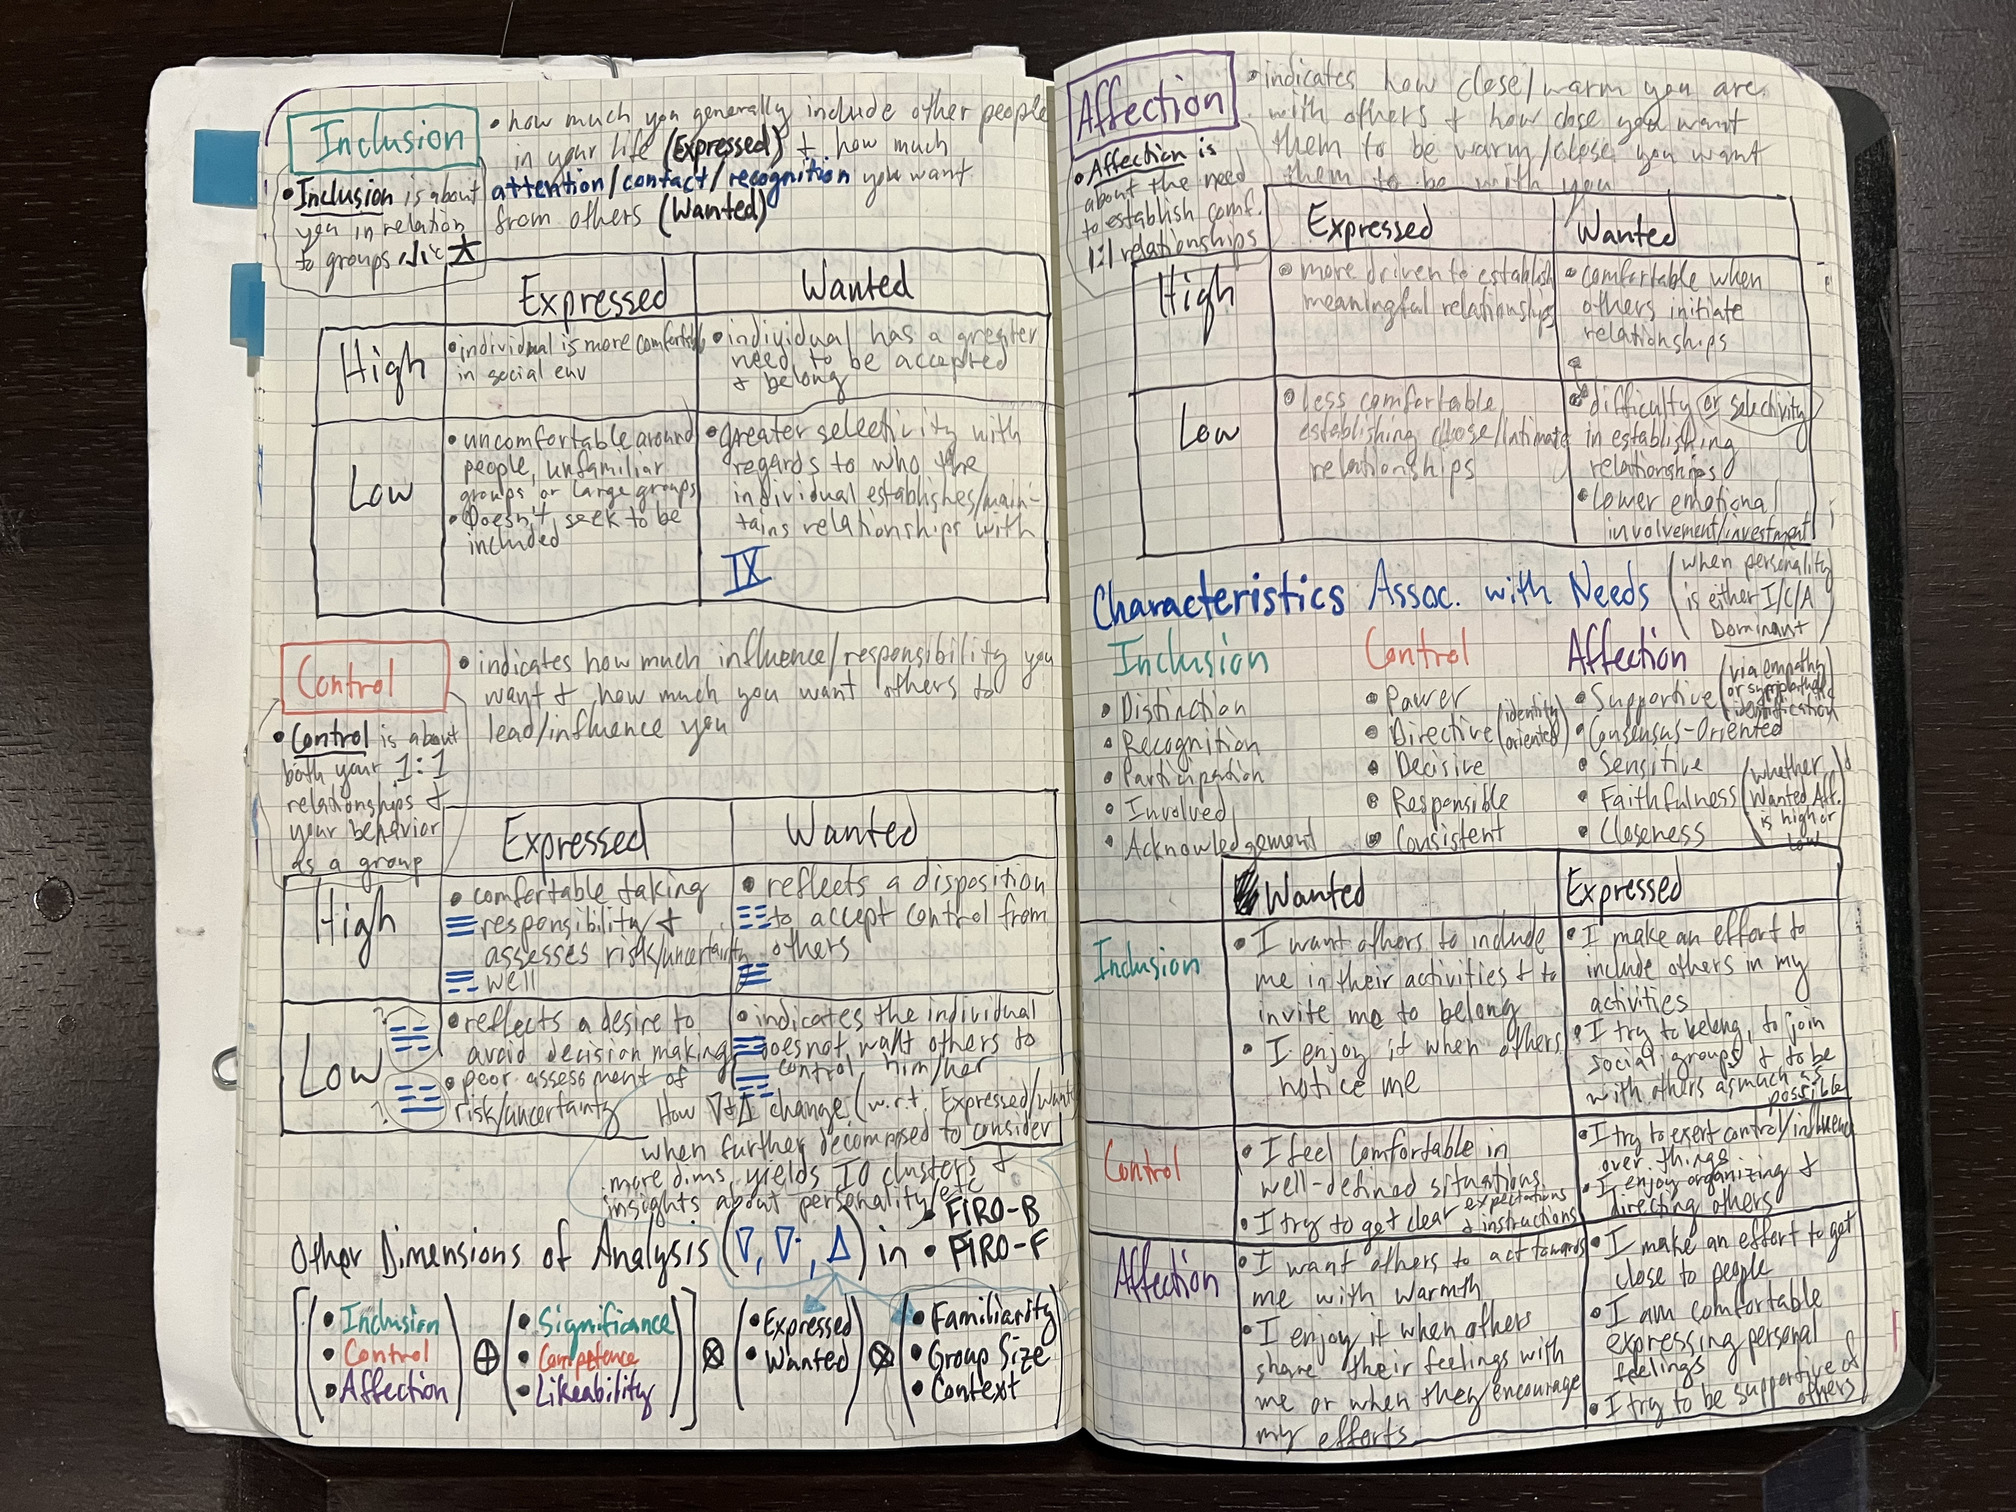 Inclusion
• how much you generally include other people
in your life (Expressed) + how much
attention/contact/recognition you want
from others (Wanted)
• Inclusion is about
you in relation
to groups
Expressed
Wanted
High
• individual is more comfortable
in social env
• individual has a greater
need to be accepted
& belong
Low
• uncomfortable around
people, unfamiliar
groups or large groups
• Doesn't seek to be
included
• Greater selectivity with
regards to who the
individual establishes/main-
tains relationships with
IX
Control
• indicates how much influence/responsibility you
want & how much you want others to
lead/influence you
• Control is about
both your 1:1
relationships &
your behavior
as a group
Expressed
Wanted
High
• comfortable taking
responsibility &
assesses risks/uncertainty
well
• reflects a disposition
to accept control from
others
Low
• reflects a desire to
avoid decision making
• poor assessment of
risk/uncertainty
• indicates the individual
does not want others to
control him/her
How ∇ & Δ change (w.r.t. Expressed/Want
when further decomposed to consider
more dims, yields 10 clusters &
insights about personality/etc
Other Dimensions of Analysis (∇, ∇·, Δ) in
• FIRO-B
• FIRO-F
[(• Inclusion
• Control
• Affection)
⊕
(• Significance
• Competence
• Likeability)]
⊗
(• Expressed
• Wanted)
⊗
(• Familiarity
• Group Size
• Context)
Affection
• indicates how close/warm you are
with others & how close you want
them to be warm/close you want
them to be with you
• Affection is
about the need
to establish comf.
1:1 relationships
Expressed
Wanted
High
• more driven to establish
meaningful relationships
• comfortable when
others initiate
relationships
Low
• Less comfortable
establishing close/intimate
relationships
• difficulty (or selectivity)
in establishing
relationships
• Lower emotional
involvement/investment
Characteristics Assoc. with Needs
(when personality
is either I/C/A
Dominant)
Inclusion
• Distinction
• Recognition
• Participation
• Involved
• Acknowledgement
Control
• Power
• Directive (identity
oriented)
• Decisive
• Responsible
• Consistent
Affection
• Supportive (via empathy
or sympathetic
identification
• Consensus-Oriented
• Sensitive
• Faithfulness
• Closeness
(whether
Wanted Aff.
is high or
low)
Wanted
Expressed
Inclusion
• I want others to include
me in their activities & to
invite me to belong
• I enjoy it when others
notice me
• I make an effort to
include others in my
activities
• I try to belong, to join
social groups & to be
with others as much as
possible
Control
• I feel comfortable in
well-defined situations
• I try to get clear expectations
& instructions
• I try to exert control/influence
over things
• I enjoy organizing &
directing others
Affection
• I want others to act towards
me with warmth
• I enjoy it when others
share their feelings with
me or when they encourage
my efforts
• I make an effort to get
close to people
• I am comfortable
expressing personal
feelings
• I try to be supportive of
others